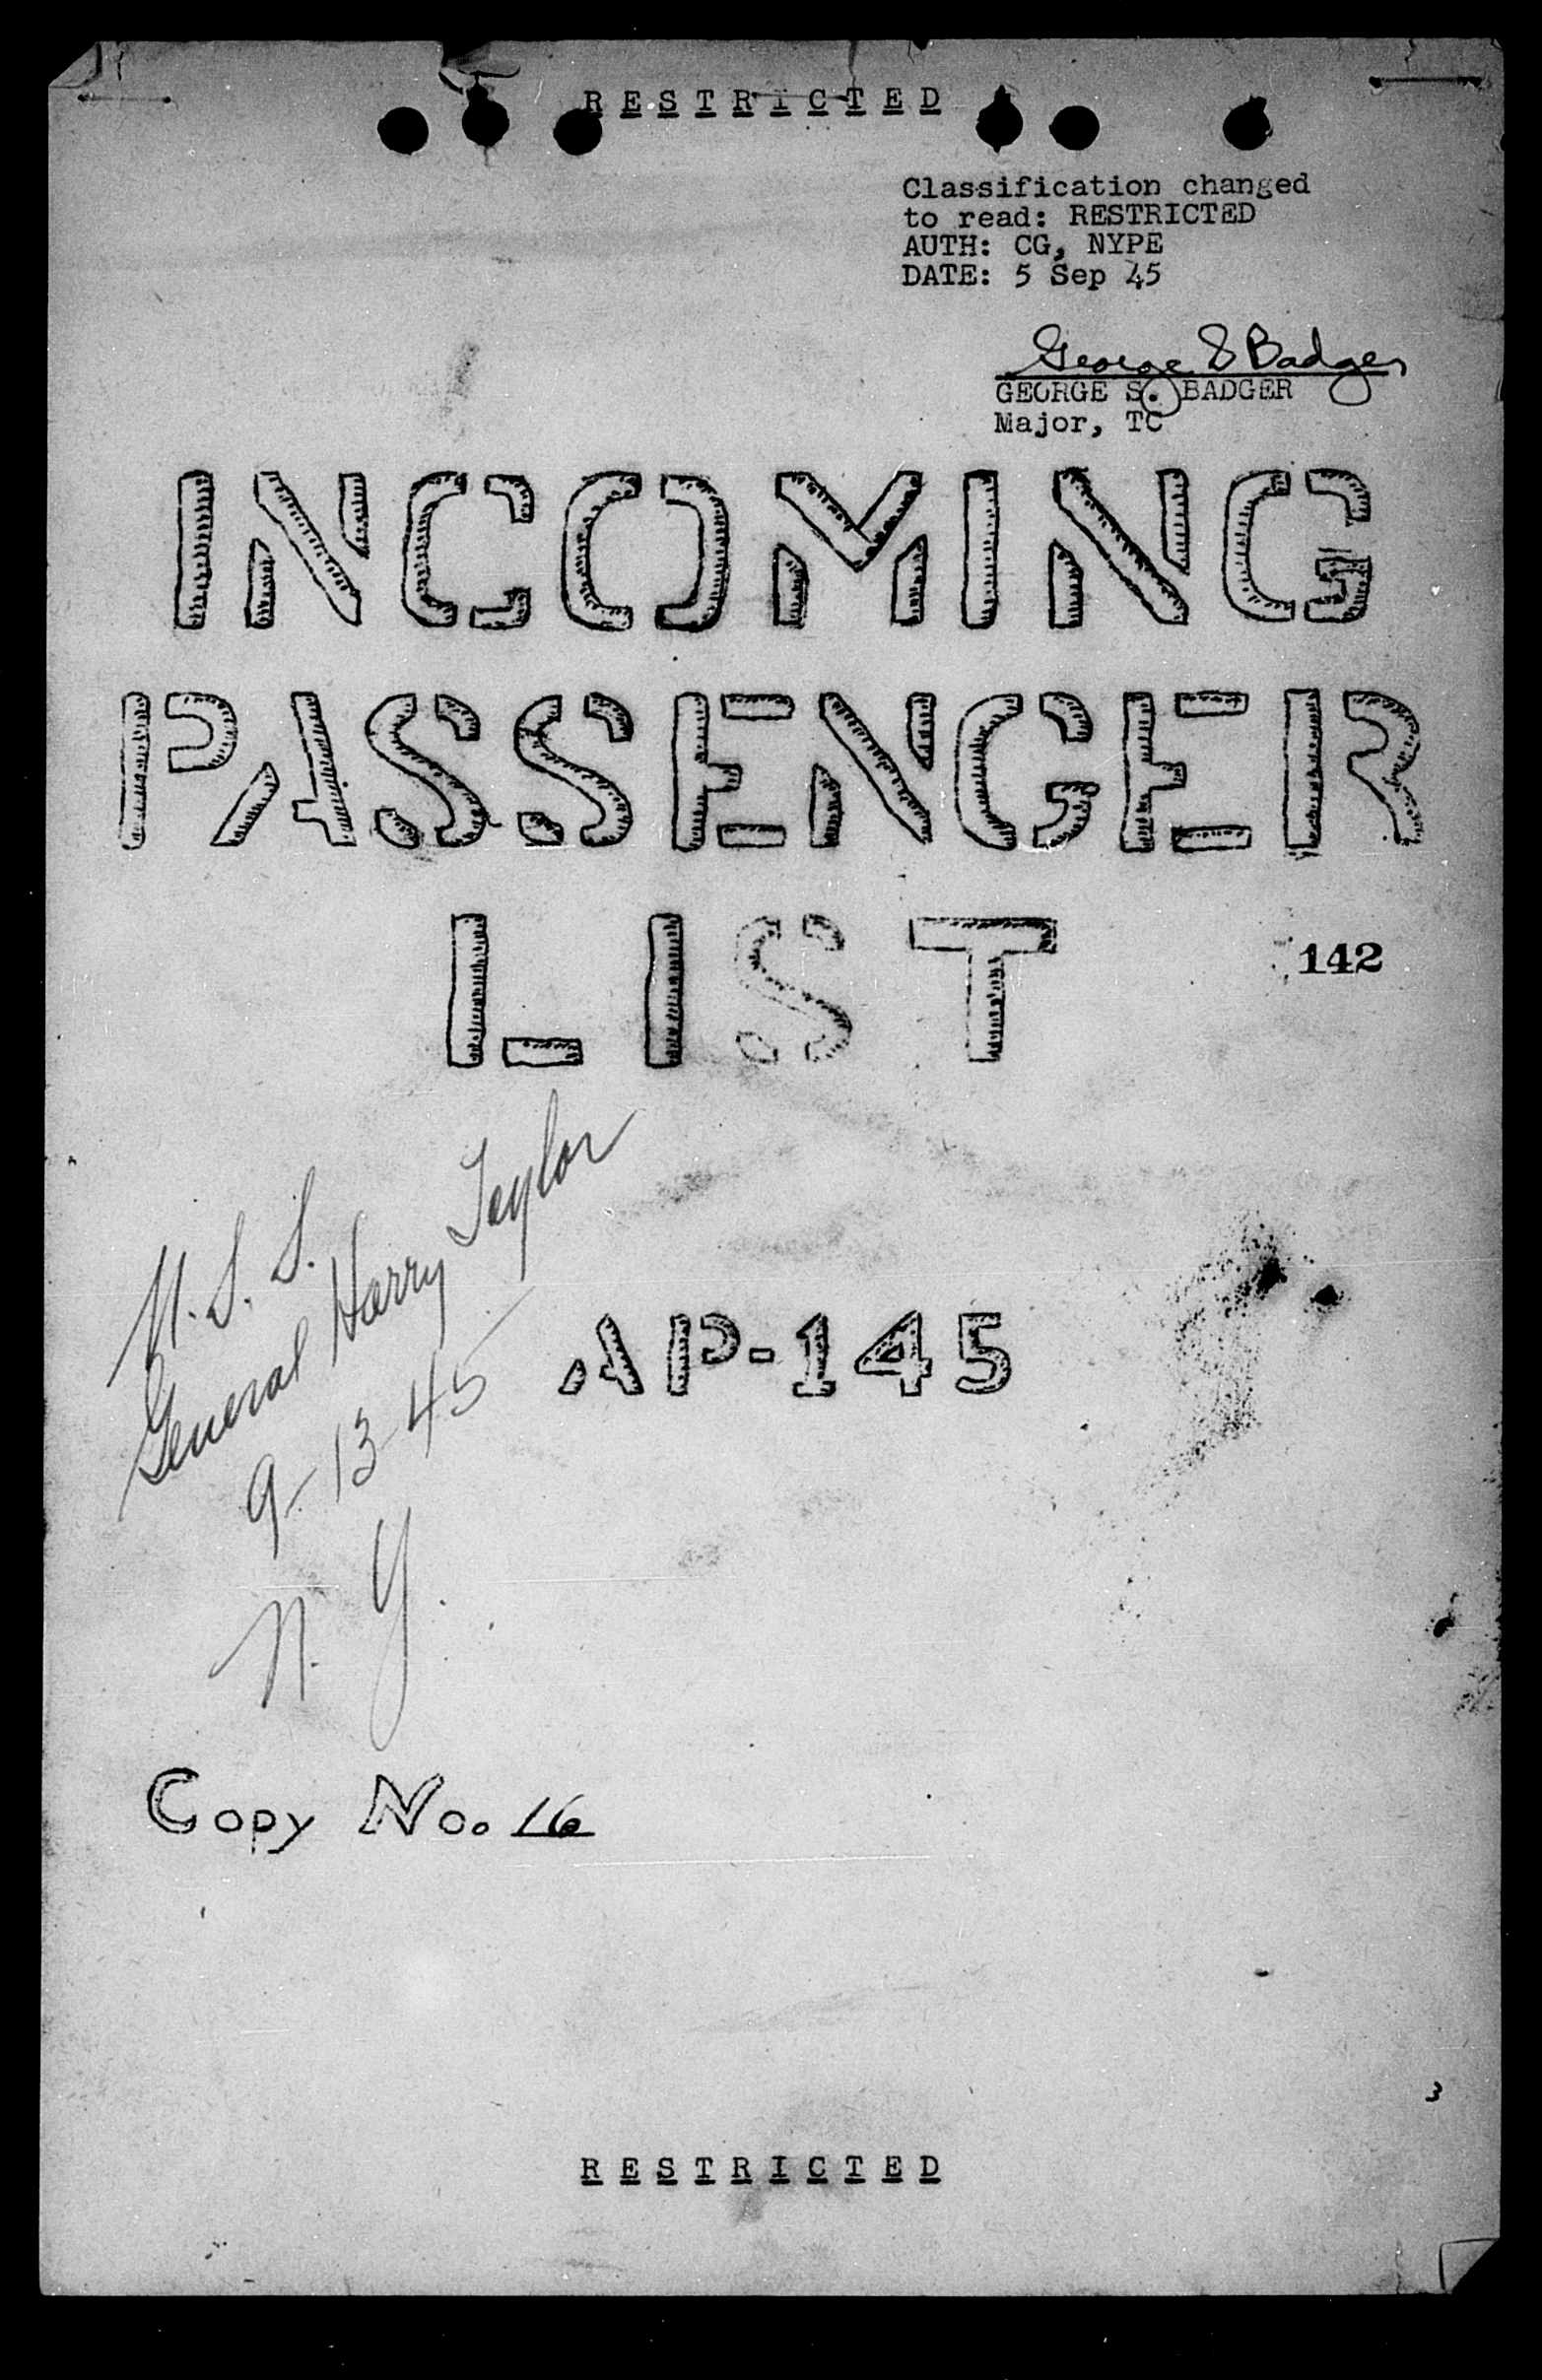 RESTRICTED
Classification changed
to read: RESTRICTED
AUTH: CG, NYPE
DATE: 5 Sep 45
George S Badger
GEORGE S. BADGER
Major, TC
INCOMING
PASSENGER
LIST
142
U.S.S.
General Harry Taylor
9-13-45
N.Y.
AP-145
Copy No. 16
3
RESTRICTED